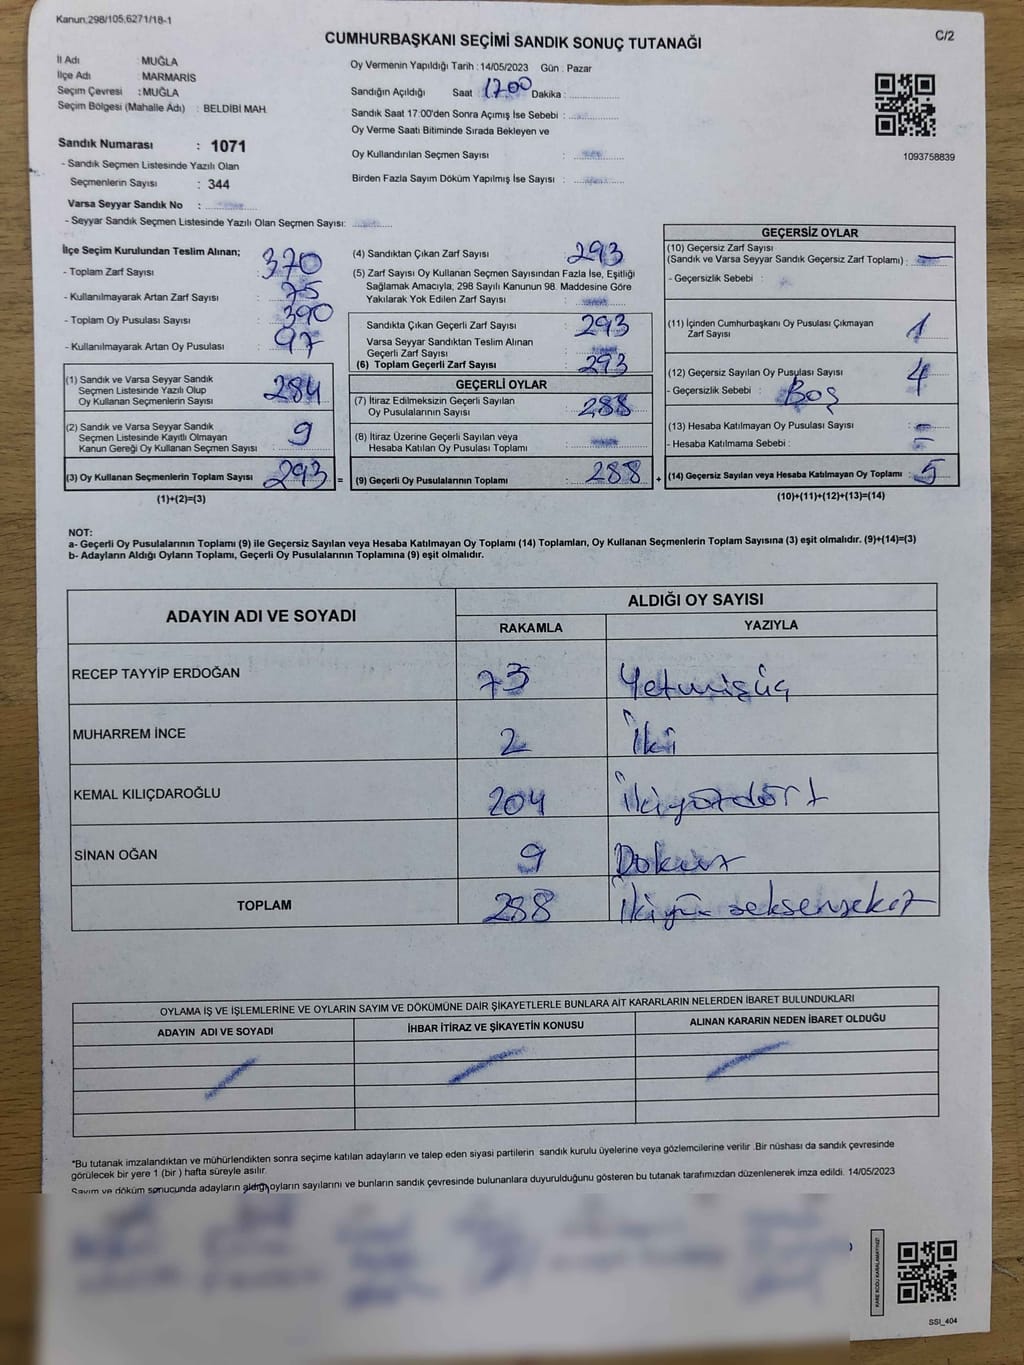 Kanun,298/105,6271/18-1
C/2
CUMHURBAŞKANI SEÇİMİ SANDIK SONUÇ TUTANAĞI
İl Adı : MUĞLA
İlçe Adı : MARMARİS
Seçim Çevresi : MUĞLA
Seçim Bölgesi (Mahalle Adı) : BELDİBİ MAH.
Sandık Numarası : 1071
- Sandık Seçmen Listesinde Yazılı Olan
Seçmenlerin Sayısı : 344
Varsa Seyyar Sandık No :
- Seyyar Sandık Seçmen Listesinde Yazılı Olan Seçmen Sayısı:
Oy Vermenin Yapıldığı Tarih : 14/05/2023 Gün : Pazar
Sandığın Açıldığı Saat 1700 Dakika :
Sandık Saat 17:00'den Sonra Açımış İse Sebebi :
Oy Verme Saati Bitiminde Sırada Bekleyen ve
Oy Kullandırılan Seçmen Sayısı :
Birden Fazla Sayım Döküm Yapılmış İse Sayısı :
1093758839
İlçe Seçim Kurulundan Teslim Alınan;
- Toplam Zarf Sayısı : 370
- Kullanılmayarak Artan Zarf Sayısı : 75
- Toplam Oy Pusulası Sayısı : 390
- Kullanılmayarak Artan Oy Pusulası : 97
(1) Sandık ve Varsa Seyyar Sandık
Seçmen Listesinde Yazılı Olup
Oy Kullanan Seçmenlerin Sayısı : 284
(2) Sandık ve Varsa Seyyar Sandık
Seçmen Listesinde Kayıtlı Olmayan
Kanun Gereği Oy Kullanan Seçmen Sayısı : 9
(3) Oy Kullanan Seçmenlerin Toplam Sayısı : 293
(1)+(2)=(3)
(4) Sandıktan Çıkan Zarf Sayısı : 293
(5) Zarf Sayısı Oy Kullanan Seçmen Sayısından Fazla İse, Eşitliği
Sağlamak Amacıyla, 298 Sayılı Kanunun 98. Maddesine Göre
Yakılarak Yok Edilen Zarf Sayısı :
Sandıkta Çıkan Geçerli Zarf Sayısı : 293
Varsa Seyyar Sandıktan Teslim Alınan
Geçerli Zarf Sayısı :
(6) Toplam Geçerli Zarf Sayısı : 293
GEÇERLİ OYLAR
(7) İtiraz Edilmeksizin Geçerli Sayılan
Oy Pusulalarının Sayısı : 288
(8) İtiraz Üzerine Geçerli Sayılan veya
Hesaba Katılan Oy Pusulası Toplamı :
= (9) Geçerli Oy Pusulalarının Toplamı : 288
GEÇERSİZ OYLAR
(10) Geçersiz Zarf Sayısı
(Sandık ve Varsa Seyyar Sandık Geçersiz Zarf Toplamı) : —
- Geçersizlik Sebebi :
(11) İçinden Cumhurbaşkanı Oy Pusulası Çıkmayan
Zarf Sayısı : 1
(12) Geçersiz Sayılan Oy Pusulası Sayısı : 4
- Geçersizlik Sebebi : Boş
(13) Hesaba Katılmayan Oy Pusulası Sayısı : —
- Hesaba Katılmama Sebebi : —
+ (14) Geçersiz Sayılan veya Hesaba Katılmayan Oy Toplamı : 5
(10)+(11)+(12)+(13)=(14)
NOT:
a- Geçerli Oy Pusulalarının Toplamı (9) ile Geçersiz Sayılan veya Hesaba Katılmayan Oy Toplamı (14) Toplamları, Oy Kullanan Seçmenlerin Toplam Sayısına (3) eşit olmalıdır. (9)+(14)=(3)
b- Adayların Aldığı Oyların Toplamı, Geçerli Oy Pusulalarının Toplamına (9) eşit olmalıdır.
ADAYIN ADI VE SOYADI ALDIĞI OY SAYISI
RAKAMLA YAZIYLA
RECEP TAYYİP ERDOĞAN 73 Yetmişüç
MUHARREM İNCE 2 İki
KEMAL KILIÇDAROĞLU 204 İkiyüzdört
SİNAN OĞAN 9 Dokuz
TOPLAM 288 İkiyüz seksensekiz
OYLAMA İŞ VE İŞLEMLERİNE VE OYLARIN SAYIM VE DÖKÜMÜNE DAİR ŞİKAYETLERLE BUNLARA AİT KARARLARIN NELERDEN İBARET BULUNDUKLARI
ADAYIN ADI VE SOYADI İHBAR İTİRAZ VE ŞİKAYETİN KONUSU ALINAN KARARIN NEDEN İBARET OLDUĞU
*Bu tutanak imzalandıktan ve mühürlendikten sonra seçime katılan adayların ve talep eden siyasi partilerin sandık kurulu üyelerine veya gözlemcilerine verilir .Bir nüshası da sandık çevresinde
görülecek bir yere 1 (bir ) hafta süreyle asılır.
Sayım ve döküm sonucunda adayların aldığı oyların sayılarını ve bunların sandık çevresinde bulunanlara duyurulduğunu gösteren bu tutanak tarafımızdan düzenlenerek imza edildi. 14/05/2023
KARE KODU KARALAMAYINIZ!
SSI_404